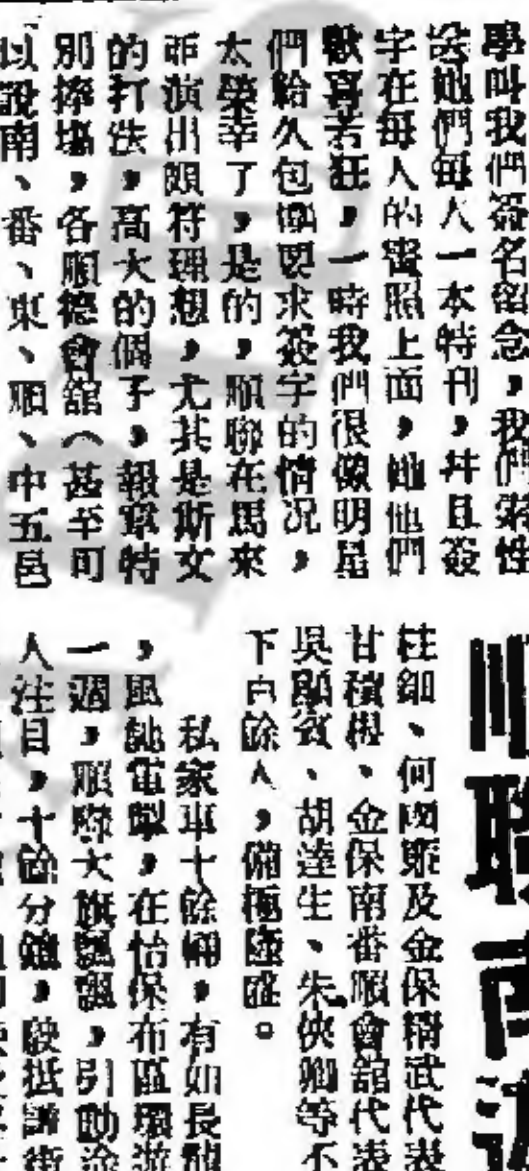 學叫我們簽名留念，我們索性
送她們每人一本特刊，幷且簽
字在每人的寶照上面，她他們
歡喜若狂，一時我們很像明星
們給久包圍要求簽字的情况，
太榮幸了，是的，順聯在馬來
演出頗符理想，尤其是斯文
的打法，高大的個子，報章特
別捧塲，各順德會館（甚至可
以說南、番、東、順、中五邑
順聯
桂鈿、何國賬及金保精武代表
甘積樹、金保南番順會館代表
吳顯資、胡達生、朱俠卿等不
下百餘人，備極隆
私家車十餘輛，有如長
，風馳電掣，在怡保市區環遊
一週，順聯大旗飄飄，引動途
人注目，十餘分鐘，駛抵諧街